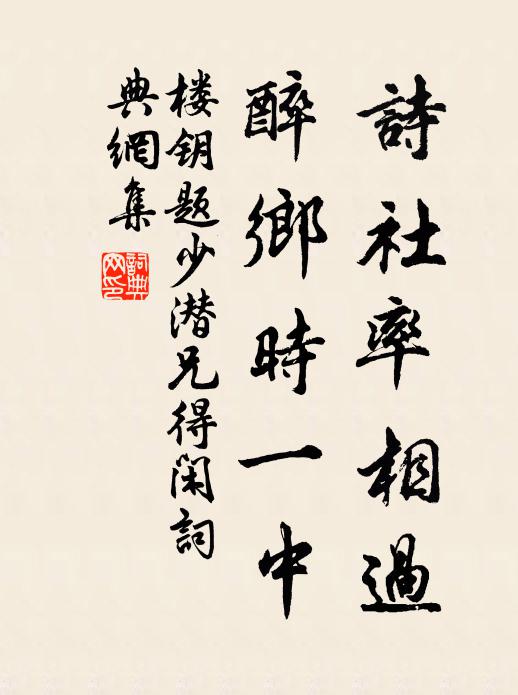 詩社率相過
醉鄉時一中
楼钥题少潜兄得闲詞
典網集
詞典网印